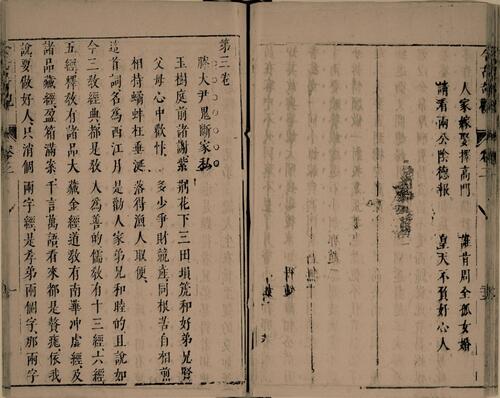 人家嫁娶擇高門　誰肯周全孤女婚
請看兩公陰德報　皇天不負好心人
第三卷
滕大尹鬼斷家私
玉樹庭前諸謝紫荊花下三田塤箎和好弟兄賢
父母心中歡忭　多少爭財競產同根苦自相煎
相持鷸蚌枉垂涎　落得漁人取便
這首詞名為西江月是勸人家弟兄和睦的且說如
今三教經典都是教人為善的儒教有十三經六經
五經釋教有諸品大藏金經道教有南華冲虛經及
諸品藏經盈箱滿案千言萬語看來都是贅疣依我
說要做好人只消個兩字經是孝弟兩個字那兩字